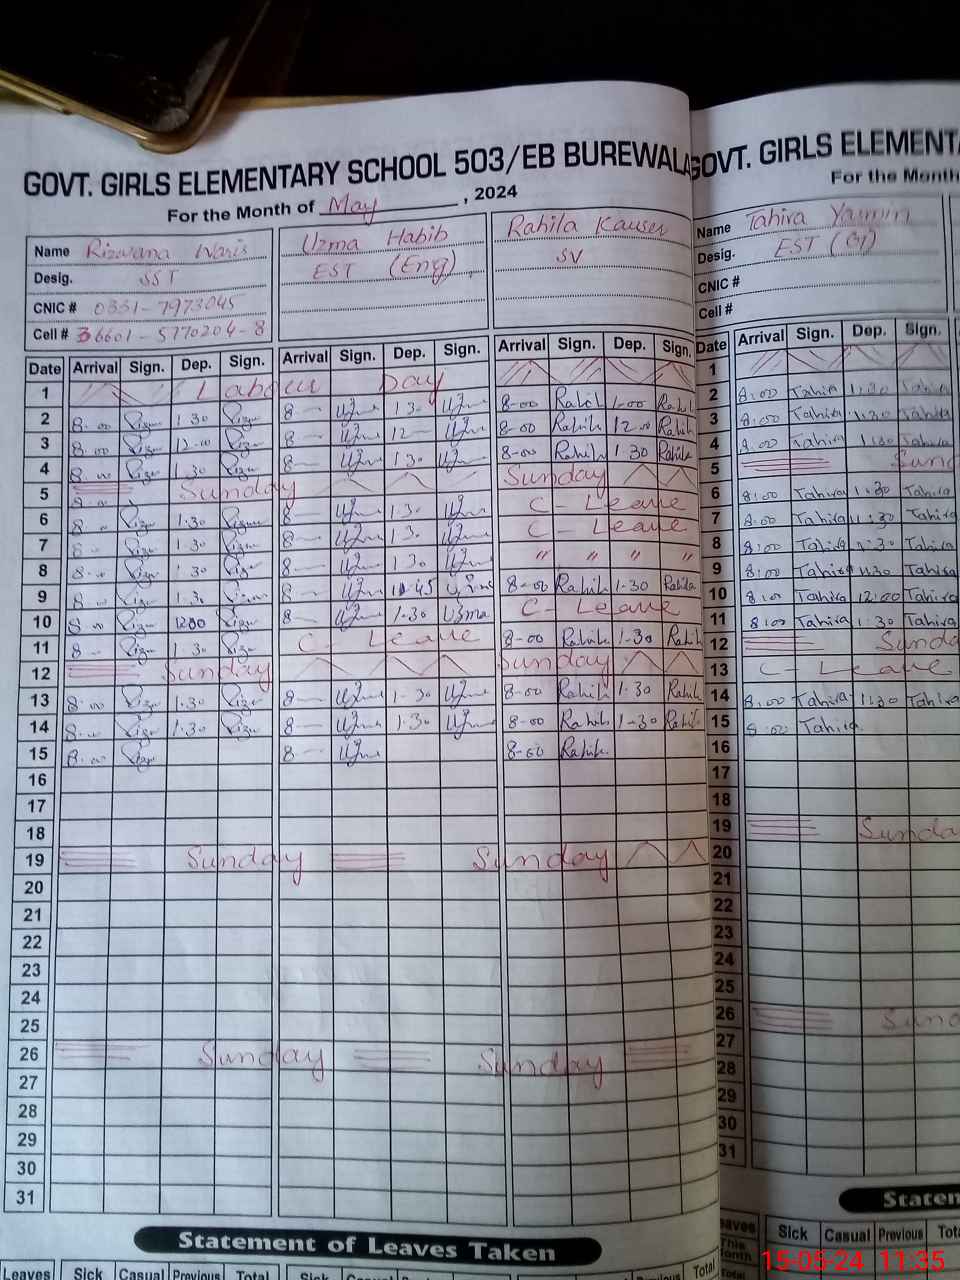 GOVT. GIRLS ELEMENTARY SCHOOL 503/EB BUREWALA
For the Month of May, 2024
Name Rizwana Waris
Desig. SST
CNIC # 0331-7973045
Cell # 36601-5770204-8
Uzma Habib
EST (Eng)
Rahila Kauser
SV
Date Arrival Sign. Dep. Sign. Arrival Sign. Dep. Sign. Arrival Sign. Dep. Sign.
1 Labour Day
2 8-00 1.30 8- 1.30 8-00 Rahila 1-00 Rahila
3 8-00 12-00 8- 12- 8-00 Rahila 12-00 Rahila
4 8-00 1.30 8- 1.30 8-00 Rahila 1-30 Rahila
5 Sunday Sunday
6 8- 1.30 8- 1-30 C-Leave
7 8- 1.30 8- 1.30 C-Leave
8 8- 1.30 8- 1.30 " " " "
9 8- 1.30 8- 8-00 Rahila 1-30 Rahila
10 8-00 1200 8- 1-30 Uzma C-Leave
11 8- 1.30 C-Leave 8-00 Rahila 1-30 Rahila
12 Sunday Sunday
13 8-00 1.30 8- 1-30 8-00 Rahila 1-30 Rahila
14 8-00 1.30 8- 1.30 8-00 Rahila 1-30 Rahila
15 8-00 8- 8-00 Rahila
16
17
18
19 Sunday Sunday
20
21
22
23
24
25
26 Sunday Sunday
27
28
29
30
31
Statement of Leaves Taken
Leaves Sick Casual Previous Total Sick Casual Previous Total Sick Casual Previous Total
GOVT. GIRLS ELEMENTA
For the Month
Name Tahira Yasmin
Desig. EST (G)
CNIC #
Cell #
Date Arrival Sign. Dep. Sign.
1
2 8:00 Tahira 1:30 Tahira
3 8:00 Tahira 1:30 Tahira
4 8:00 Tahira 1:30 Tahira
5 Sund
6 8:00 Tahira 1:30 Tahira
7 8:00 Tahira 1:30 Tahira
8 8:00 Tahira 1:30 Tahira
9 8:00 Tahira 1:30 Tahira
10 8:00 Tahira 12:00 Tahira
11 8:00 Tahira 1:30 Tahira
12 Sunda
13 C-Leave
14 8:00 Tahira 1:30 Tahira
15 8:00 Tahira
16
17
18
19 Sunda
20
21
22
23
24
25
26 Sund
27
28
29
30
31
Statem
eaves This Month Sick Casual Previous Tot
Total
15-05-24 11:35